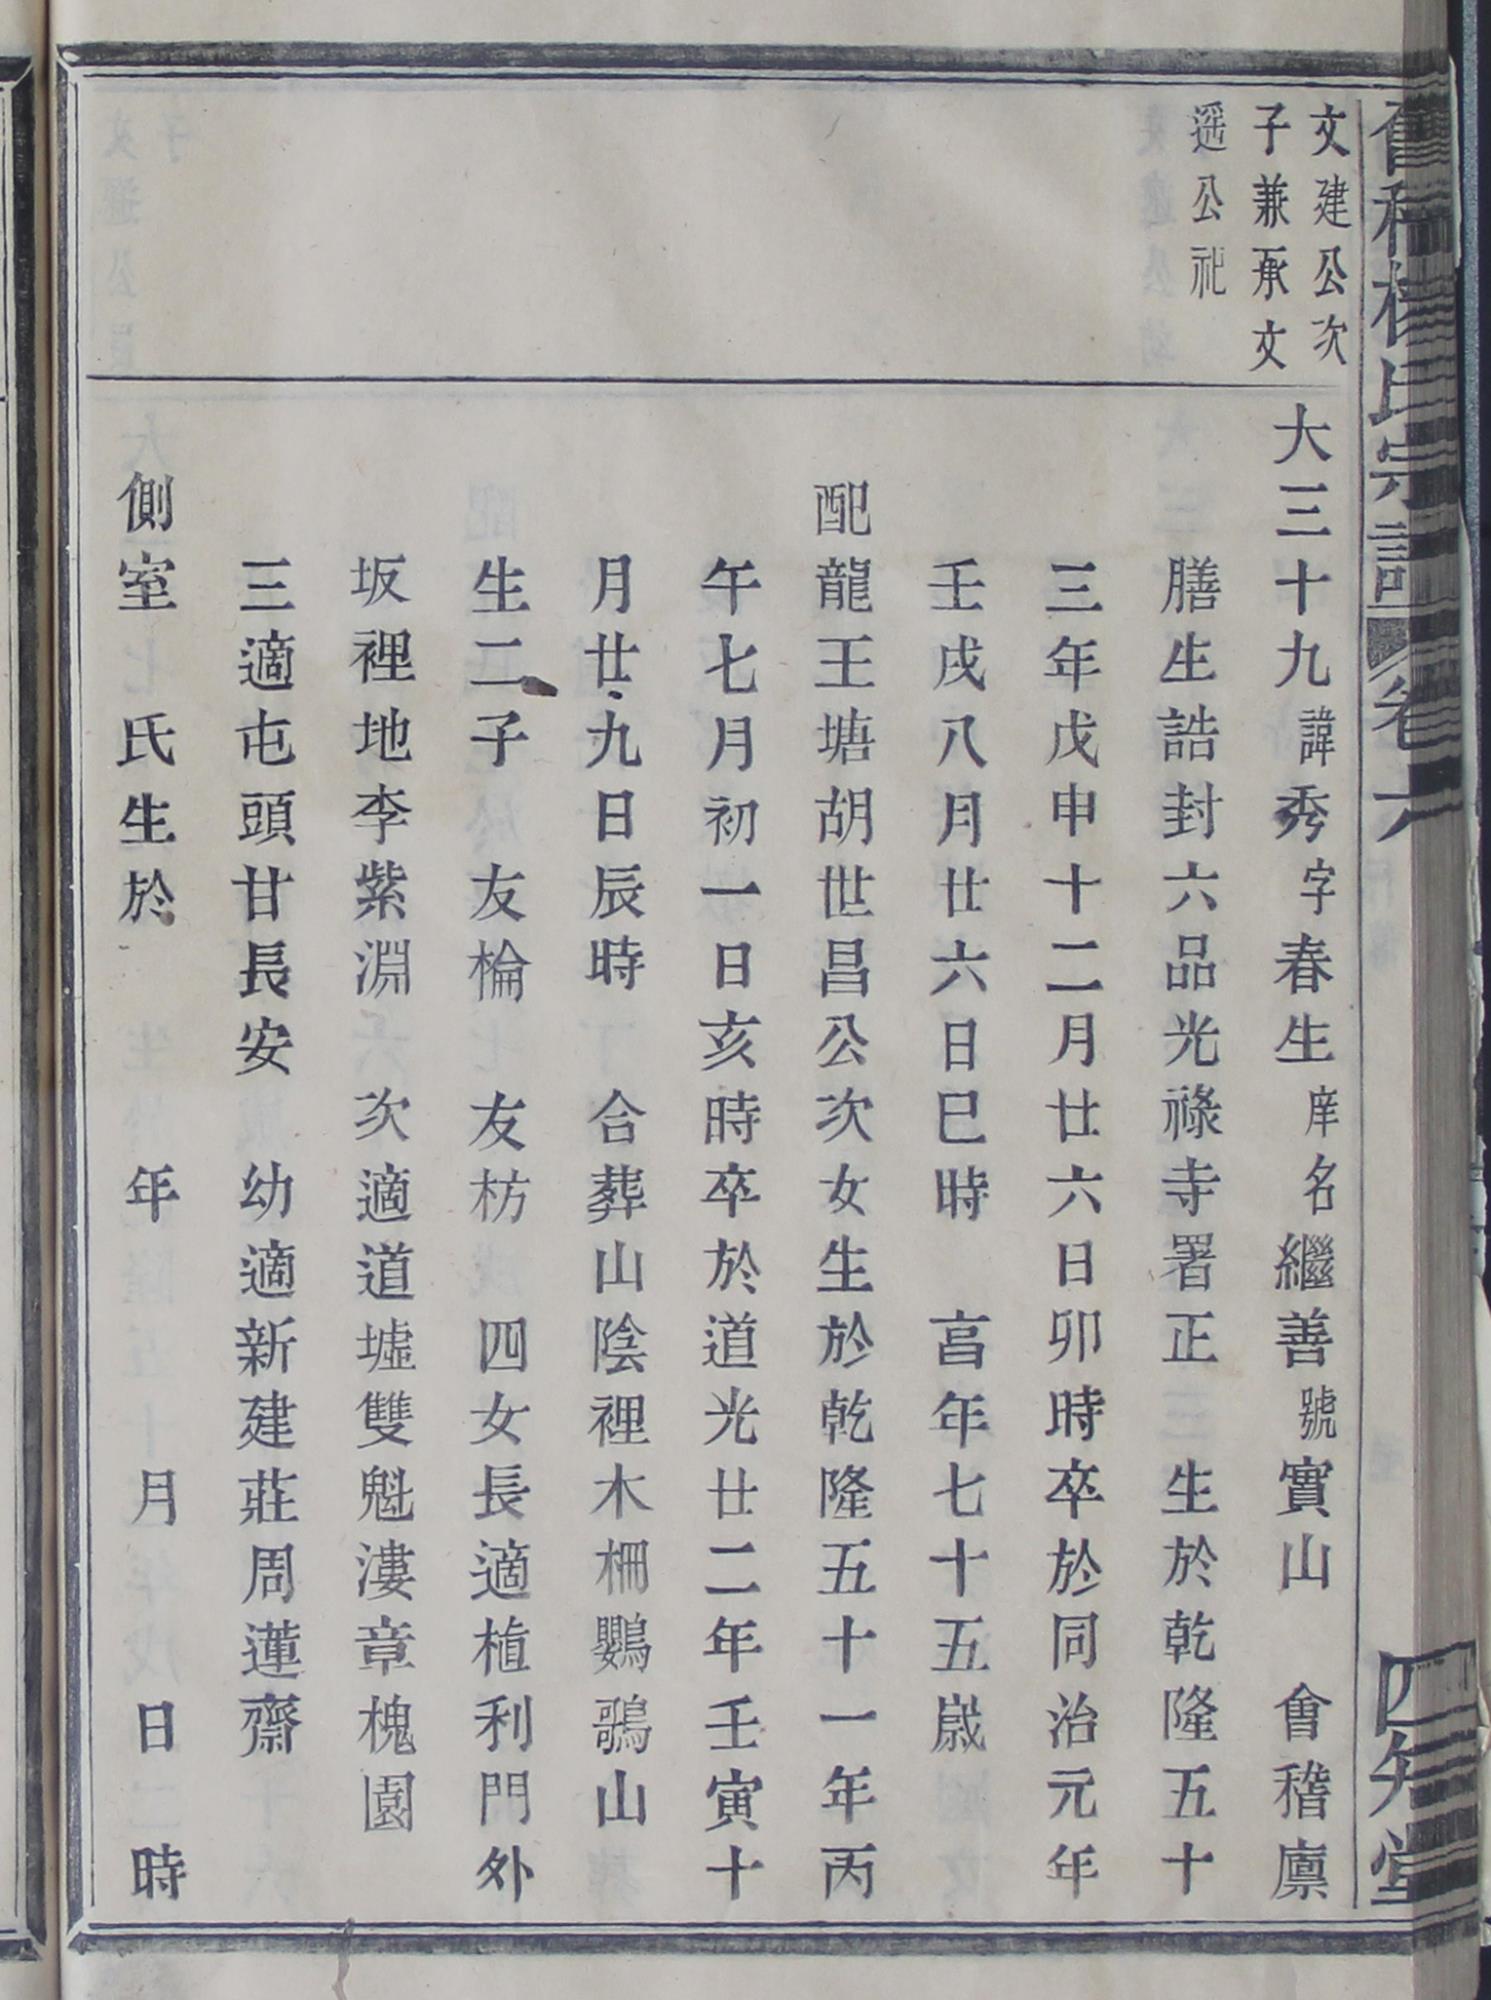 文建公次
子兼承文
遥公祀
大三十九諱秀字春生庠名繼善號寶山 會稽廪
膳生誥封六品光祿寺署正 生於乾隆五十
三年戊申十二月廿六日卯時卒於同治元年
壬戌八月廿六日巳時 亯年七十五歲
配龍王塘胡世昌公次女生於乾隆五十一年丙
午七月初一日亥時卒於道光廿二年壬寅十
月廿九日辰時 合葬山陰裡木柵鸚鵡山
生二子 友棆 友枋 四女長適植利門外
坂裡地李紫淵 次適道墟雙魁漊章槐園
三適屯頭甘長安 幼適新建莊周蓮齋
側室 氏生於 年 月 日 時
氏宗譜 卷六 四知堂